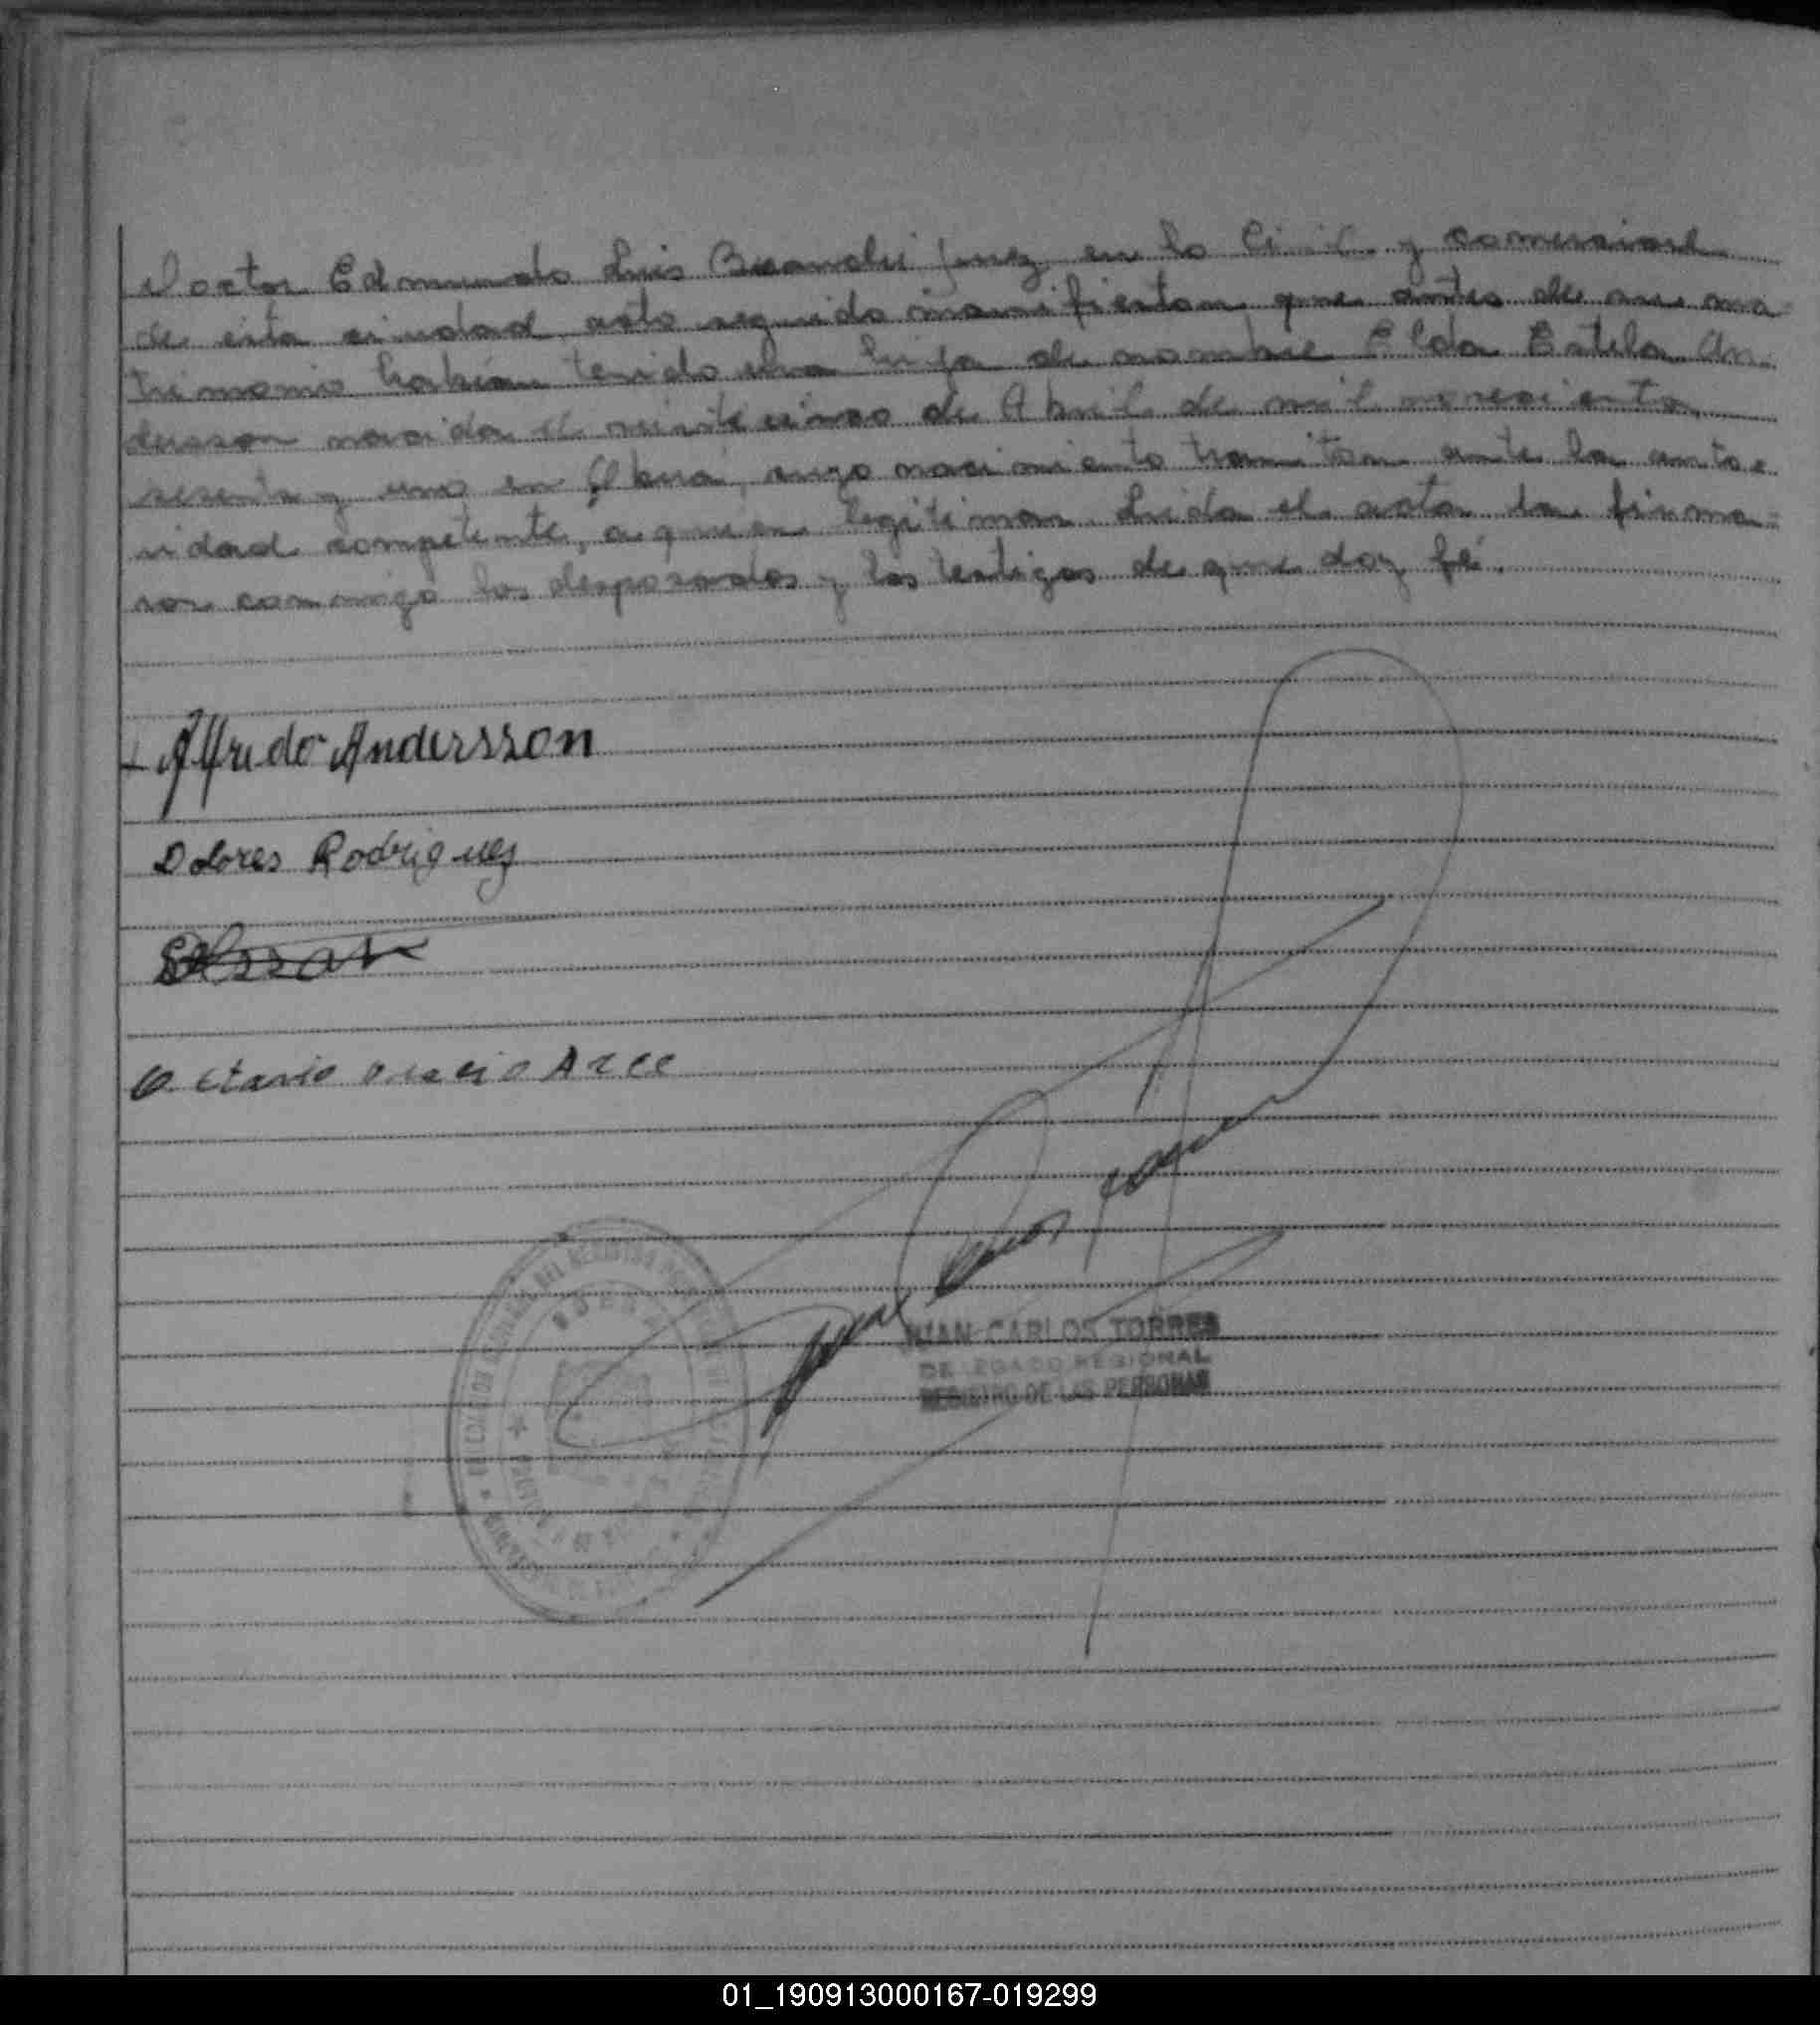 Doctor Edmundo Luis Brandu juez en lo Civil y comercial
de esta ciudad, acto seguido manifiestan que antes de su ma-
trimonio habian tenido una hija de nombre Elda Estela An-
dersson nacida el veinte cinco de Abril de mil novecientos
sesenta y uno en Oberá, cuyo nacimiento tramitan ante la auto-
ridad competente, a quien legitiman. Leida el acta la firma-
ron conmigo los desposados y los testigos de que doy fé.
Alfredo Andersson
Dolores Rodriguez
Octavio Oracio Arce
JUAN CARLOS TORRES
DELEGADO REGIONAL
REGISTRO DE LAS PERSONAS
01_190913000167-019299